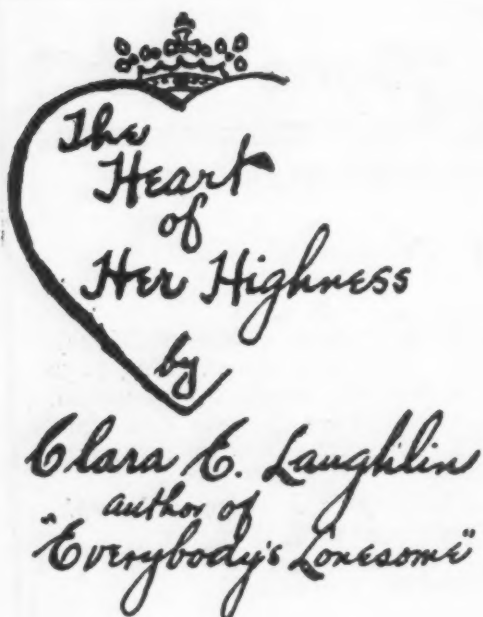 The
Heart
of
Her Highness
by
Clara E. Laughlin
author of
"Everybody's Lonesome"